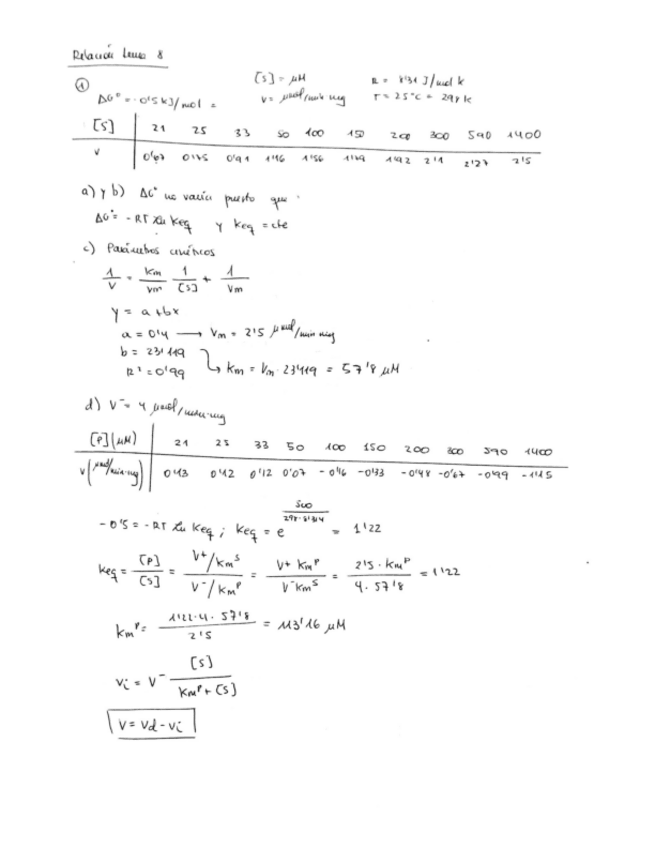 Relación tema 8
①
[S] = μM R = 8'31 J/mol k
ΔG° = -0'5 kJ/mol = V = μmol/min mg T = 25°C = 298 k
[S] 21 25 33 50 100 150 200 300 590 1400
v 0'67 0'75 0'91 1'16 1'56 1'79 1'92 2'1 2'27 2'5
a) y b) ΔG° no varía puesto que
ΔG° = -RT Ln Keq y Keq = cte
c) Parámetros cinéticos
1/V = Km/Vm 1/[S] + 1/Vm
y = a + bx
a = 0'4 → Vm = 2'5 μmol/min mg
b = 23'119
R² = 0'99 ↳ Km = Vm · 23'119 = 57'8 μM
d) V⁻ = 4 μmol/min·mg
[P](μM) 21 25 33 50 100 150 200 300 590 1400
v(μmol/min·mg) 0'13 0'12 0'12 0'07 -0'16 -0'33 -0'48 -0'67 -0'99 -1'15
-0'5 = -RT Ln Keq ; Keq = e^(500/298·8'314) = 1'22
Keq = [P]/[S] = (V⁺/Km^S)/(V⁻/Km^P) = V⁺ Km^P/V⁻ Km^S = 2'5 · Km^P/4 · 57'8 = 1'22
Km^P = 1'22 · 4 · 57'8/2'5 = 113'16 μM
vi = V⁻ [S]/Km^P + [S]
V = Vd - Vi